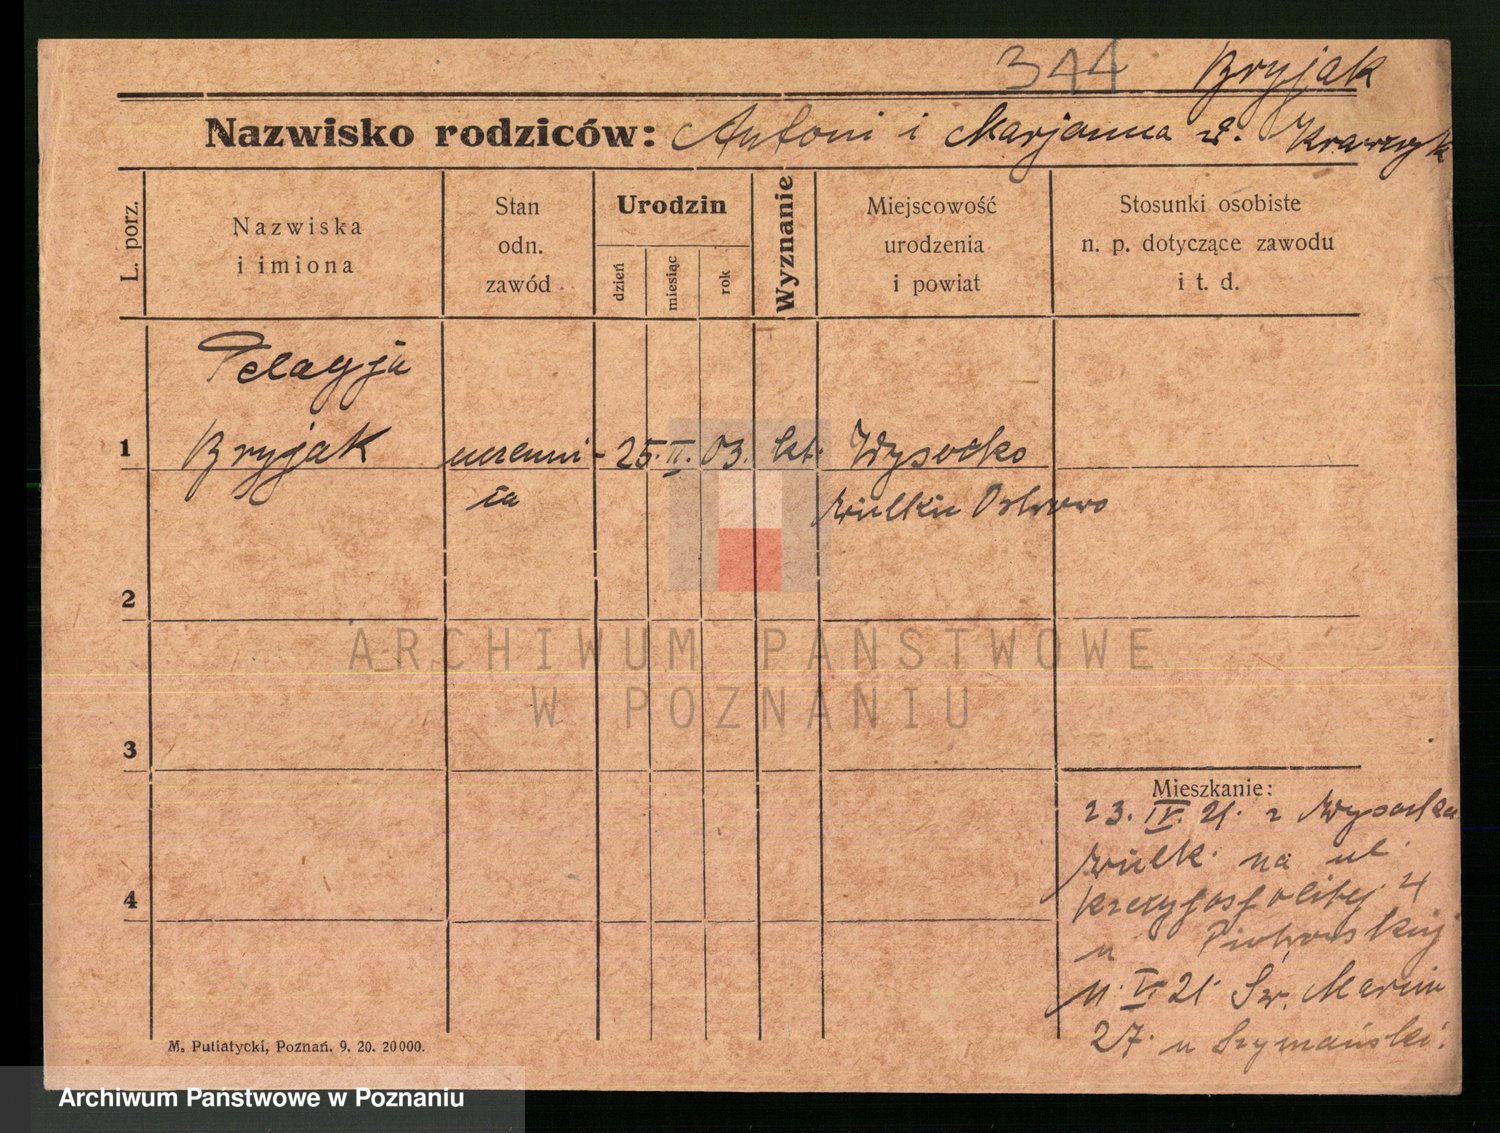 344 Bryjak
Nazwisko rodziców: Antoni i Marjanna z d. Krawczyk
L. porz.
Nazwiska
i imiona
Stan
odn.
zawód
Urodzin
dzień
miesiąc
rok
Wyznanie
Miejscowość
urodzenia
i powiat
Stosunki osobiste
n. p. dotyczące zawodu
i t. d.
Pelagja
1 Bryjak uczenni- 25. II. 03. kt. Wysocko
ca Wielkie Ostrowo
2
3
4
Mieszkanie:
23. IV. 21. z Wysocka
Wielk. na ul.
Rzezypospolitej 4
u Piotrowskiej
11. V. 21. Św. Marcin
27. u Szymański.
M. Putiatycki, Poznań. 9. 20. 20000.
ARCHIWUM PAŃSTWOWE
W POZNANIU
Archiwum Państwowe w Poznaniu